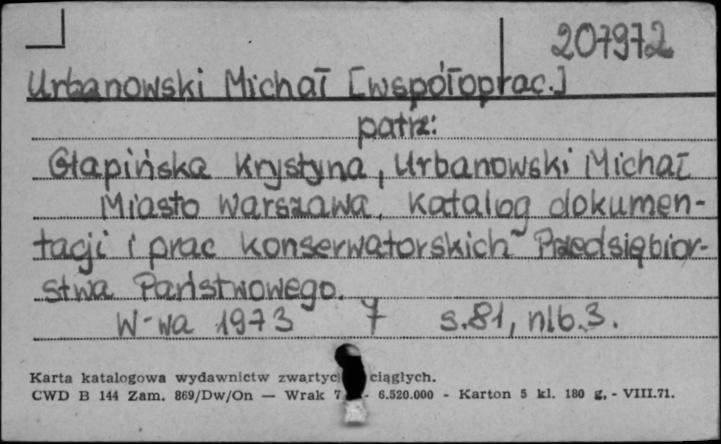 207972
Urbanowski Michał [współoprac.]
patrz:
Głapińska Krystyna, Urbanowski Michał
Miasto Warszawa. Katalog dokumen-
tacji i prac konserwatorskich Przedsiębior-
stwa Państwowego.
W-wa 1973 7 s.81, nlb.3.
Karta katalogowa wydawnictw ciągłych.
CWD B 144 Zam. 869/Dw/On — Wrak 7 - 6.520.000 - Karton 5 kl. 180 g, - VIII.71.